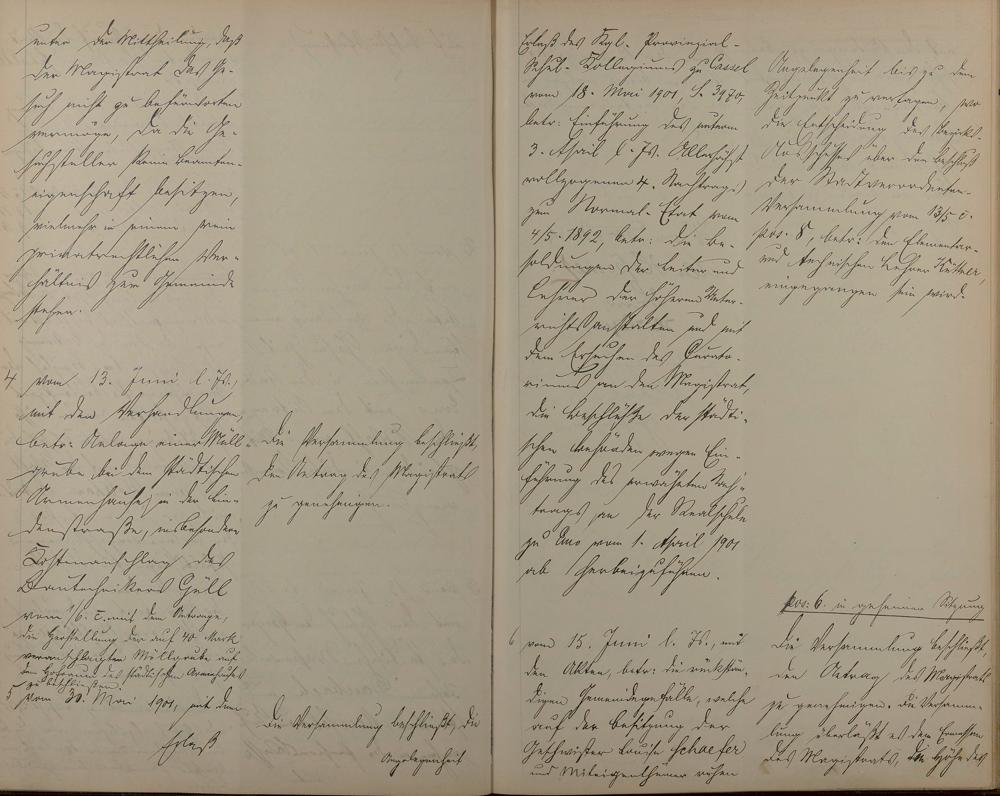 unter der Mittheilung, daß
der Magistrat das Ge-
such nicht zu befürworten
vermöge, da die Ge-
suchsteller keine Beamten-
eigenschaft besitzen,
vielmehr in einem rein
privatrechtlichen Ver-
hältniß zur Gemeinde
stehen.
4 vom 13. Juni l. Js.,
mit den Verhandlungen,
betr: Anlage einer Müll-
grube bei dem städtischen
Armenhause in der Lin-
denstraße, insbesondere
Kostenanschlag des
Bautechnikers Güll
vom 1/6. c. mit dem Antrage,
die Herstellung der auf 40 Mark
veranschlagten Müllgrube auf
dem Hofraum des städtischen Armenhauses
zu beschließen.
Die Versammlung beschließt,
den Antrag des Magistrats
zu genehmigen.
5 vom 30. Mai 1901, mit dem
Erlaß
Die Versammlung beschließt, die
Angelegenheit
Erlaß des Kgl. Provinzial-
Schul-Kollegiums zu Cassel
vom 18. Mai 1901, S. 3970,
betr: Einführung des unterm
3. April l. Js. Allerhöchst
vollzogenen 4. Nachtrags
zum Normal-Etat vom
4/5. 1892, betr: die Be-
soldungen der Leiter und
Lehrer der höheren Unter-
richtsanstalten und mit
dem Ersuchen des Curato-
riums an den Magistrat,
die Beschlüsse der städti-
schen Behörden wegen Ein-
führung des erwähnten Nach-
trags an der Realschule
zu Ems vom 1. April 1901
ab herbeizuführen.
Angelegenheit bis zu dem
Zeitpunkt zu vertagen, wo
die Entscheidung des Bezirks-
Ausschusses über den Beschluß
der Stadtverordneten-
Versammlung vom 13/5 c.
pos. 8, betr: den Elementar-
und technischen Lehrer
eingegangen sein wird.
6 vom 15. Juni l. Js., mit
den Akten, betr: die rückstän-
digen Gemeindegefälle, welche
auf der Besitzung der
Geschwister Louise Schaefer
und Miteigenthümer ruhen
pos: 6. in geheimer Sitzung
Die Versammlung beschließt,
den Antrag des Magistrats
zu genehmigen. Die Versamm-
lung überläßt es dem Ermessen
des Magistrats, die Höhe des